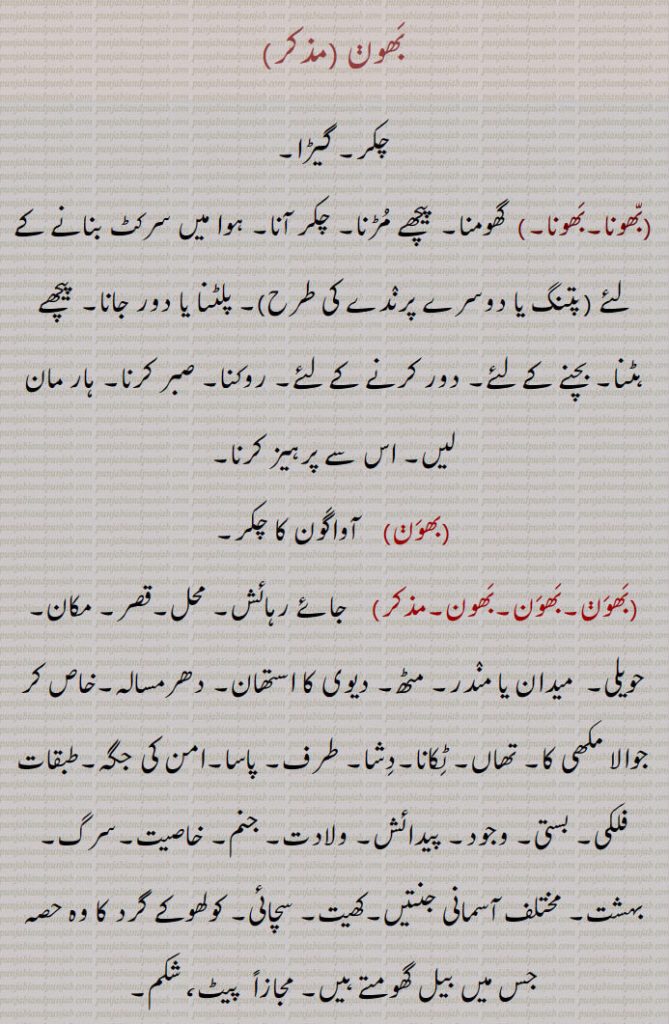 بَھوݨ (مذکر)
چکر۔ گیڑا۔
(بّھونا۔بَھونا۔) گھومنا۔ پیچھے مُڑنا۔ چکر آنا۔ ہوا میں سرکٹ بنانے کے
لئے (پتنگ یا دوسرے پرنْدے کی طرح)۔ پلٹنا یا دور جانا۔ پیچھے
ہٹنا۔ بچنے کے لئے۔ دور کرنے کے لئے۔ روکنا۔ صبر کرنا۔ ہار مان
لیں۔ اس سے پرہیز کرنا۔
(بھوَݨ) آواگون کا چکر۔
(بَھوَݨ۔بَھوَن۔بَھون۔مذکر) جائے رہائش۔ محل۔قصر۔ مکان۔
حویلی۔ میدان یا منْدر۔ مٹھ۔ دیوی کا استھان۔ دھرمسالہ۔خاص کر
جوالا مکھی کا۔ تھاں۔ ٹِکانا۔دِشا۔ طرف۔ پاسا۔امن کی جگہ۔طبقات
فلکی۔ بستی۔ وجود۔ پیدائش۔ ولادت۔ جنم۔ خاصیت۔سرگ۔
بہشت۔ مختلف آسمانی جنتیں۔کھیت۔ سچائی۔ کولھوکے گرد کا وہ حصہ
جس میں بیل گھومتے ہیں۔ مجازاً پیٹ، شکم۔